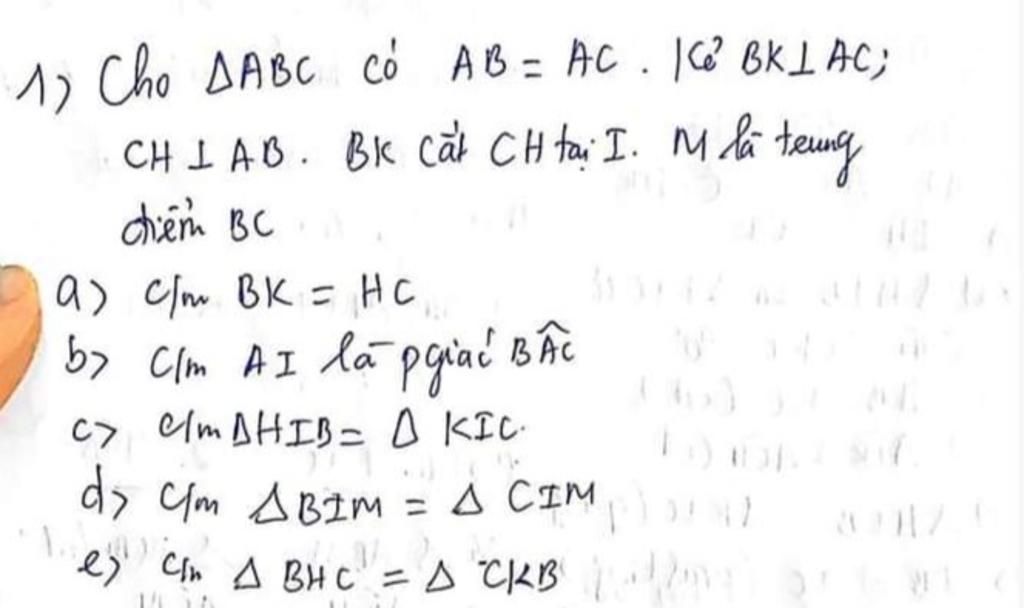 1) Cho ΔABC có AB = AC. Kẻ BK⊥AC;
CH⊥AB. BK cắt CH tại I. M là trung
điểm BC
a) C/m BK = HC
b) C/m AI là pgiác BÂC
c) c/m ΔHIB = Δ KIC.
d) C/m ΔBIM = Δ CIM
e) C/m Δ BHC = Δ CKB